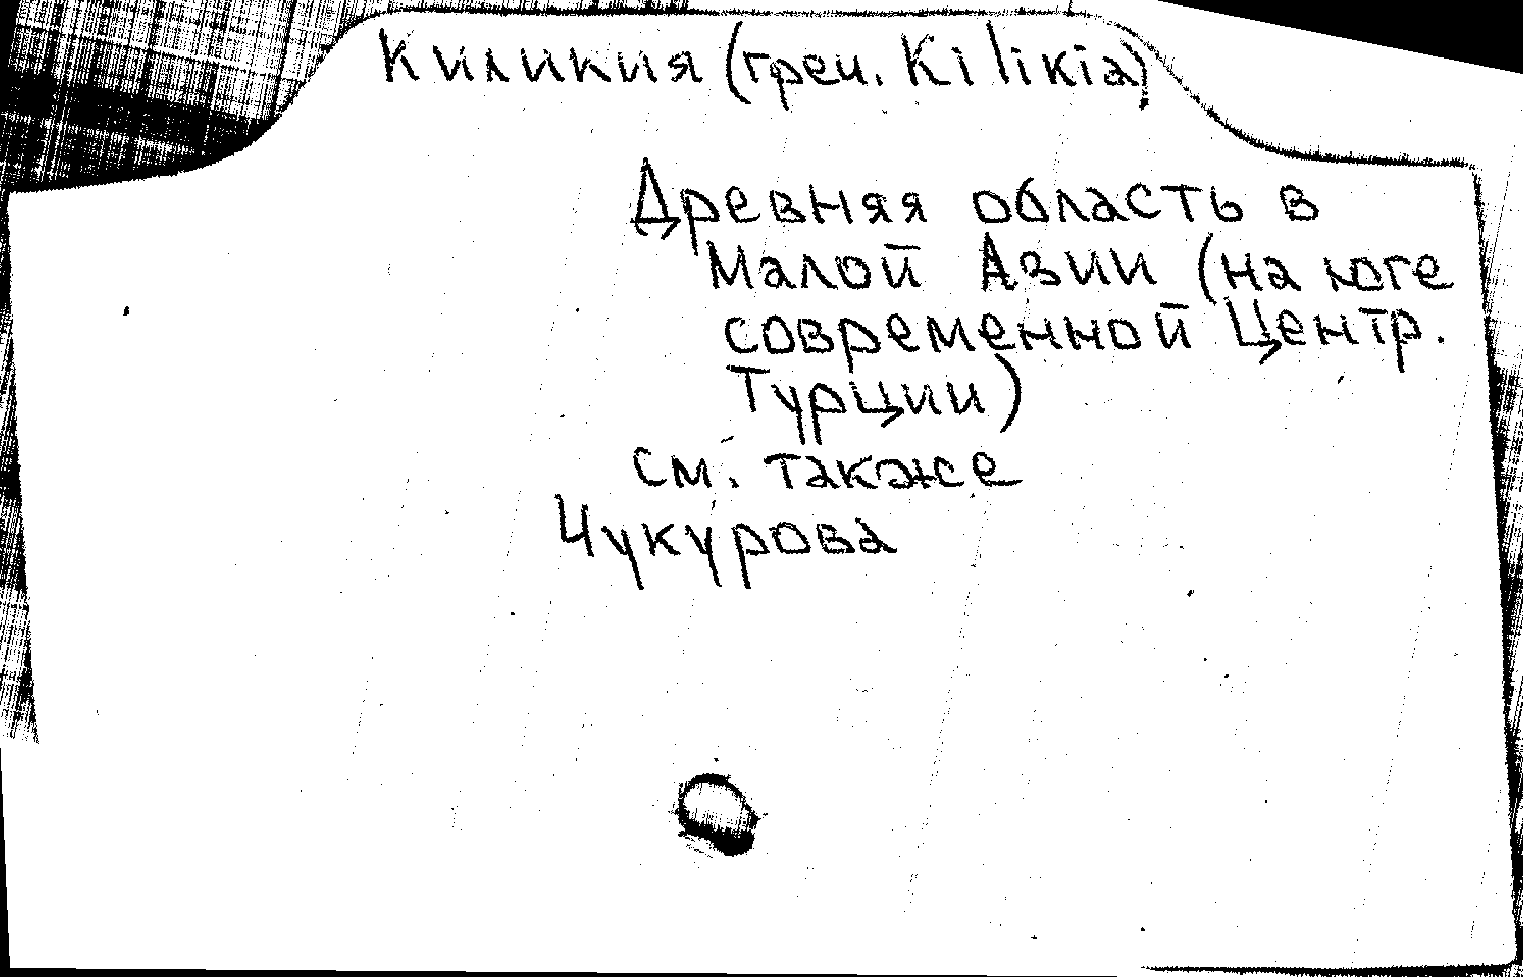 Киликия (греч. Kilikia)
Древняя область в
Малой Азии (на юге
современной Центр.
Турции)
см. также
Чукурова